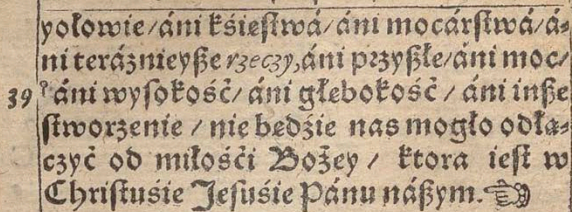 yołowie/áni kśiestwá/áni mocárstwá/á-
ni teráznieyße rzeczy,áni przyßłe/áni moc/
39 áni wysokość/ áni głebokość / áni inße
stworzenie / nie bedźie nas mogło odłą-
czyć od miłośći Bożey / ktora iest w
Christuśie Jesuśie Pánu náßym.